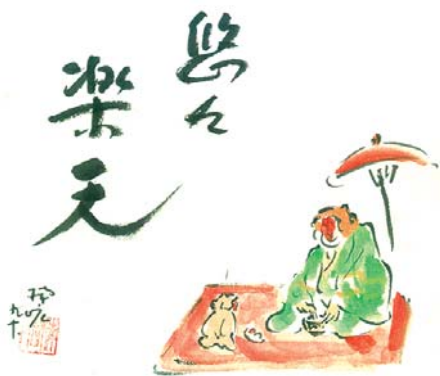 悠々
楽天
九十